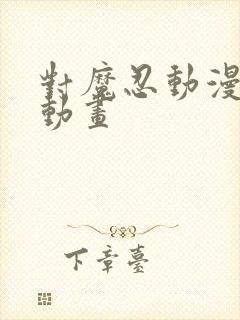 對魔忍動漫
動畫
下章臺